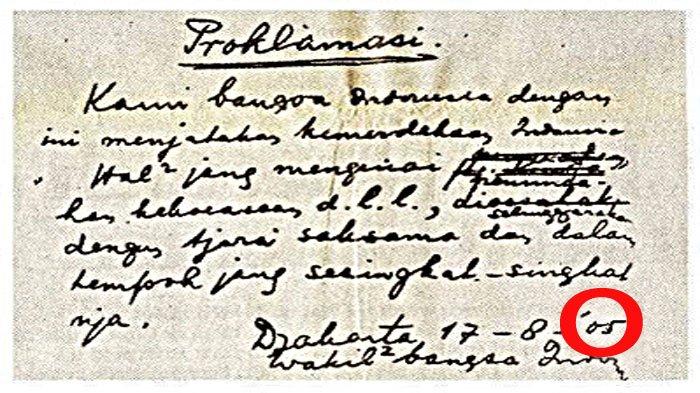 Proklamasi.
Kami bangsa Indonesia dengan
ini menjatakan kemerdekaan Indonesia
Hal² jang mengenai
pemindah-
kan kekoeasaan d.l.l., dioesahak
diselenggarakan
dengan tjara saksama dan dalam
tempoh jang sesingkat-singkat
nja.
Djakarta 17 - 8 - '05
Wakil² bangsa Indon